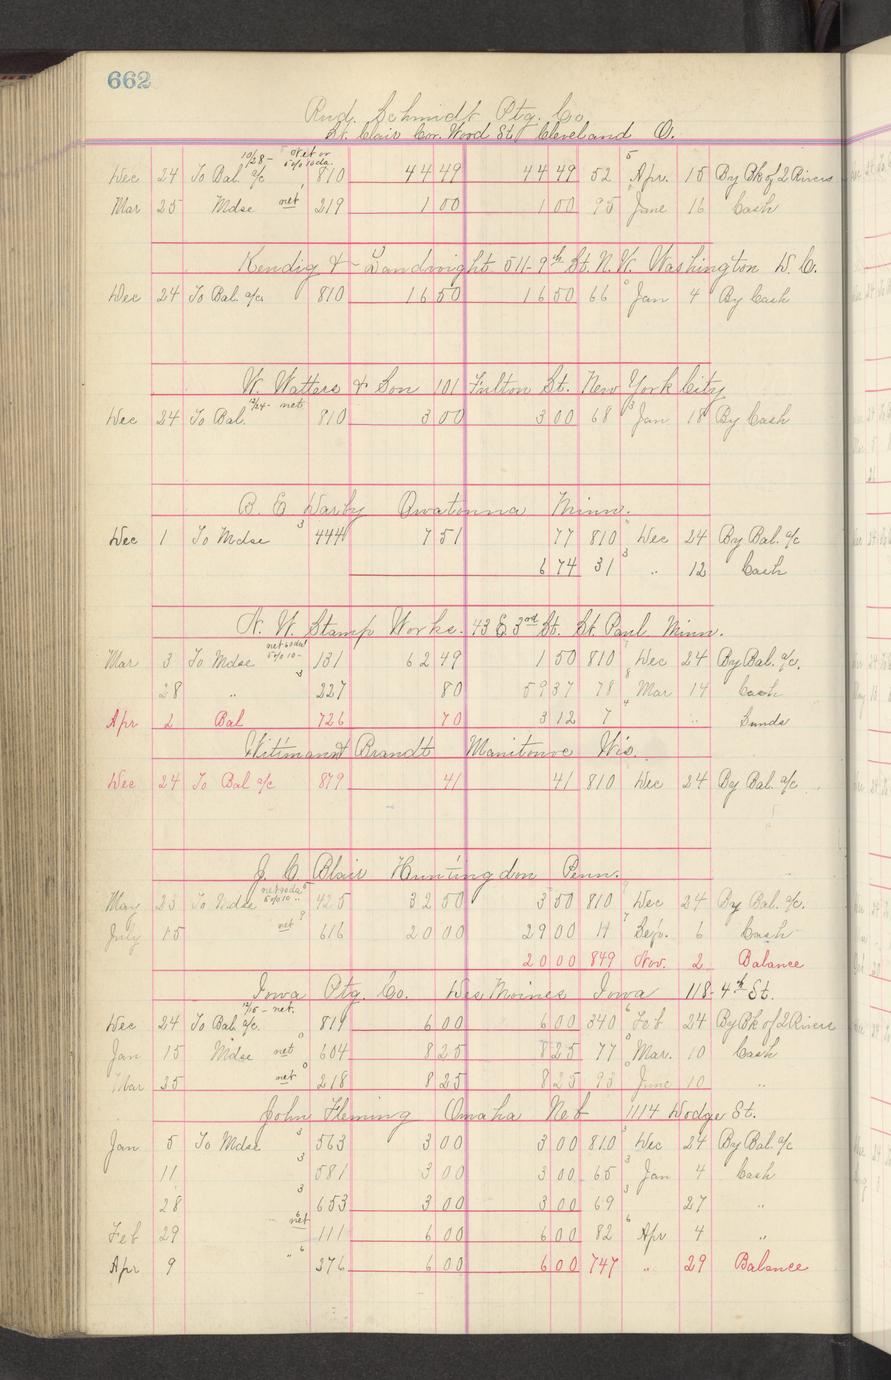 662
Rud. Schmidt Ptg. Co
St. Clair Cor. Wood St. Cleveland O.
10/28 - Net or 5% 10 da.
Dec 24 To Bal a/c 810 44 49 44 49 52 5 Apr. 15 By Bk of 2 Rivers
Mar 25 Mdse net 219 1 00 1 00 95 June 16 Cash
Kendig & Landvoight 511-9th St. N.W. Washington D.C.
Dec 24 To Bal. a/c. 810 16 50 16 50 66 0 Jan 4 By Cash
W. Watters & Son 101 Fulton St. New York City
12/24 - net
Dec 24 To Bal. 810 3 00 3 00 68 3 Jan 18 By Cash
B. E. Darby Owatonna Minn.
Dec 1 To Mdse 3 444 7 51 77 810 Dec 24 By Bal. a/c
6 74 31 3 " 12 Cash
N. W. Stamp Works. 43 E 3rd St. St. Paul Minn.
net 60 da 5% 10 -
Mar 3 To Mdse 131 62 49 1 50 810 Dec 24 By Bal. a/c.
28 " 3 227 80 59 37 78 8 Mar 14 Cash
Apr 2 Bal 726 70 3 12 7 4 " Sunds
Brandt Manitowoc Wis.
Dec 24 To Bal a/c 879 41 41 810 Dec 24 By Bal. a/c
J. C. Blair Huntingdon Penn.
net 60 da. 5
5% 10 "
May 23 To Mdse 425 32 50 3 50 810 9 Dec 24 By Bal. a/c.
July 15 net 9 616 20 00 29 00 14 7 Sep. 6 Cash
20 00 849 Nov. 2 Balance
Iowa Ptg. Co. Des Moines Iowa 118 - 4th St.
12/15 - net.
Dec 24 To Bal. a/c. 819 6 00 6 00 340 6 Feb 24 By Bk of 2 Rivers
Jan 15 Mdse net 0 604 8 25 8 25 77 0 Mar. 10 Cash
Mar 25 net 0 218 8 25 8 25 93 0 June 10 "
John Fleming Omaha Neb 1114 Dodge St.
Jan 5 To Mdse 3 563 3 00 3 00 810 3 Dec 24 By Bal. a/c
11 3 581 3 00 3 00 65 3 Jan 4 Cash
28 3 653 3 00 3 00 69 3 27 "
Feb 29 net 6 111 6 00 6 00 82 6 Apr 4 "
Apr 9 " 6 376 6 00 6 00 747 " 29 Balance